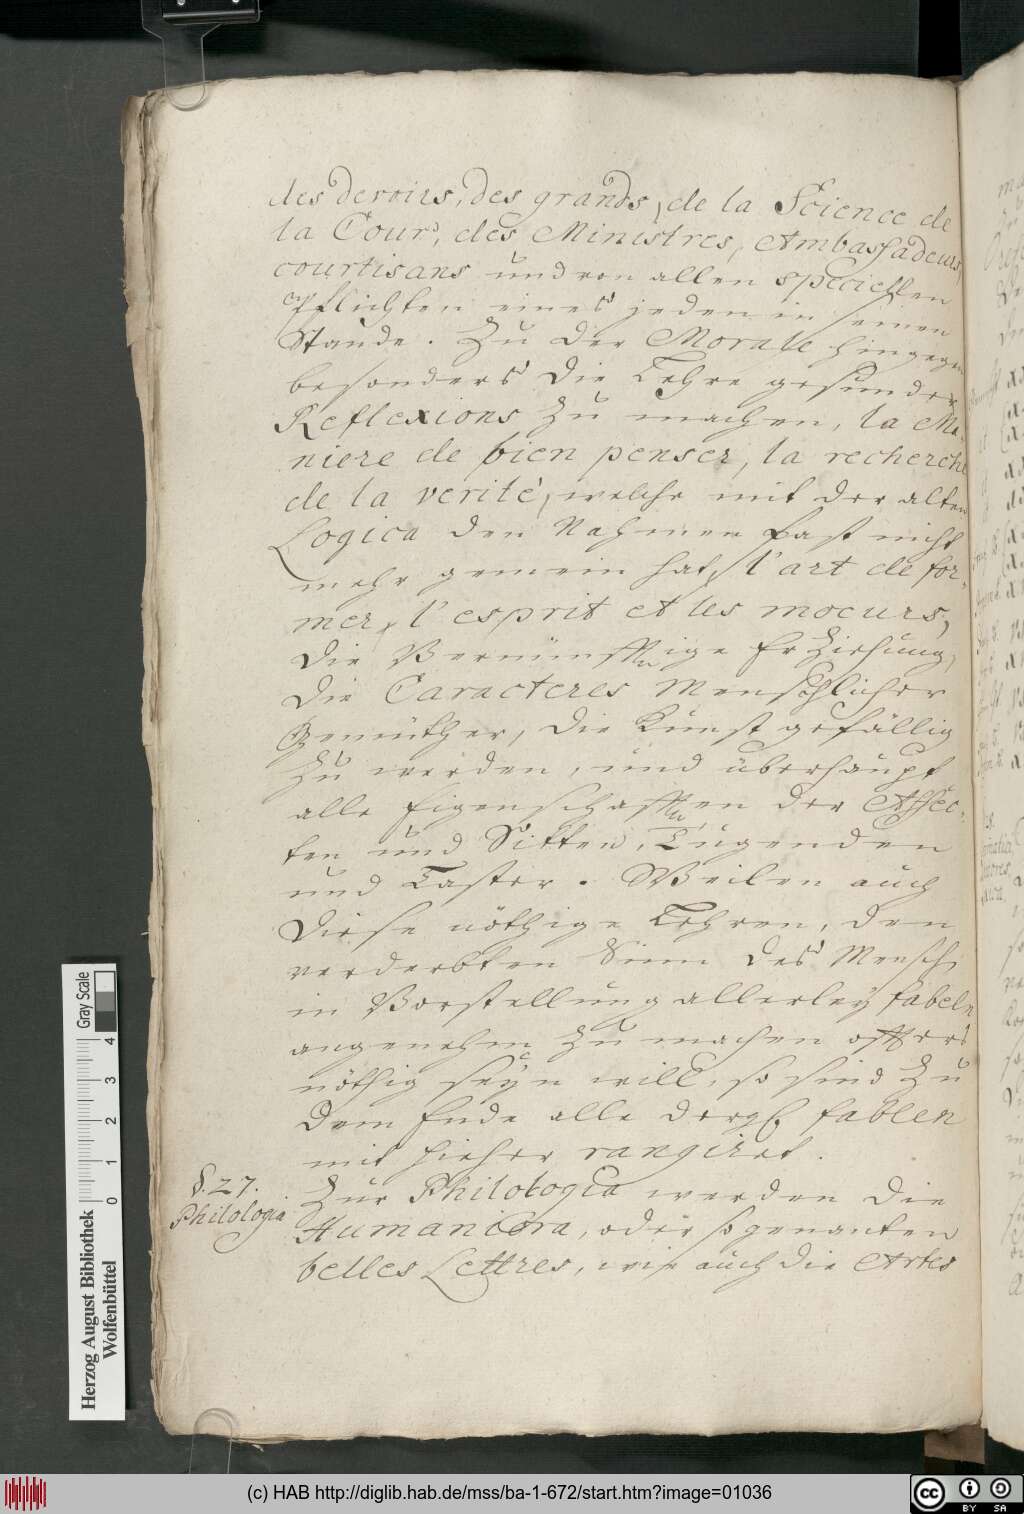 des devoirs, des grands, de la Science de
la Cour, des Ministres, Ambassadeurs,
courtisans und von allen speciellen
Pflichten eines jeden in seinem
Stande. Zu der Morale hingegen
besonders die Lehre gesunder
Reflexions zu machen, la Ma-
niere de bien penser, la recherche
de la verité, welche mit der alten
Logica den Nahmen fast nicht
mehr gemein hat, l'art de for-
mer l'esprit et les moeurs,
die Vernünfftige Erziehung,
die Caracteres Menschlicher
Gemüther, die Kunst gefällig
zu werden, und überhaupt
alle Eigenschafften der Affec-
ten und Sitten, Tugenden
und Laster. Weilen auch
diese nöthige Lehren, den
verderbten Sinn des Mensch
in Vorstellung allerley fabeln
angenehm zu machen offters
nöthig seyn will, so sind zu
dem Ende alle dergl. fablen
mit hieher rangiret.
§. 27.
Philologia.
Zur Philologia werden die
Humaniora, oder so genanten
belles Lettres, wie auch die Artes
Gray Scale
0 1 2 3 4
Herzog August Bibliothek
Wolfenbüttel
(c) HAB http://diglib.hab.de/mss/ba-1-672/start.htm?image=01036
cc BY SA